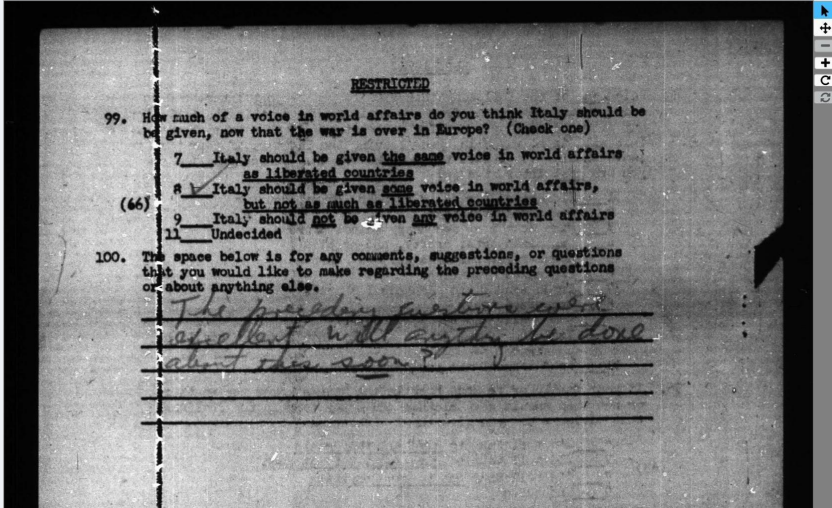 RESTRICTED
99. How much of a voice in world affairs do you think Italy should be
be given, now that the war is over in Europe? (Check one)
7___Italy should be given the same voice in world affairs
as liberated countries
8_✓_Italy should be given some voice in world affairs,
but not as much as liberated countries
(66)
9___Italy should not be given any voice in world affairs
11___Undecided
100. The space below is for any comments, suggestions, or questions
that you would like to make regarding the preceding questions
or about anything else.
The preceding questions were
excellent will anything be done
about this soon?